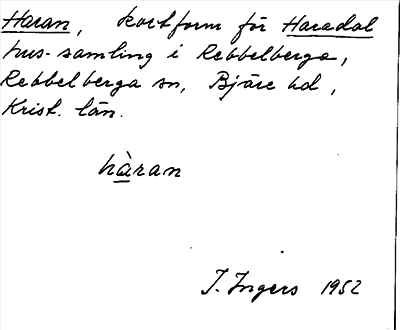 Haran, kortform för Haradal
hus-samling i Rebbelberga,
Rebbelberga sn, Bjäre hd,
Krist. län.
hàran
I. Ingers 1952